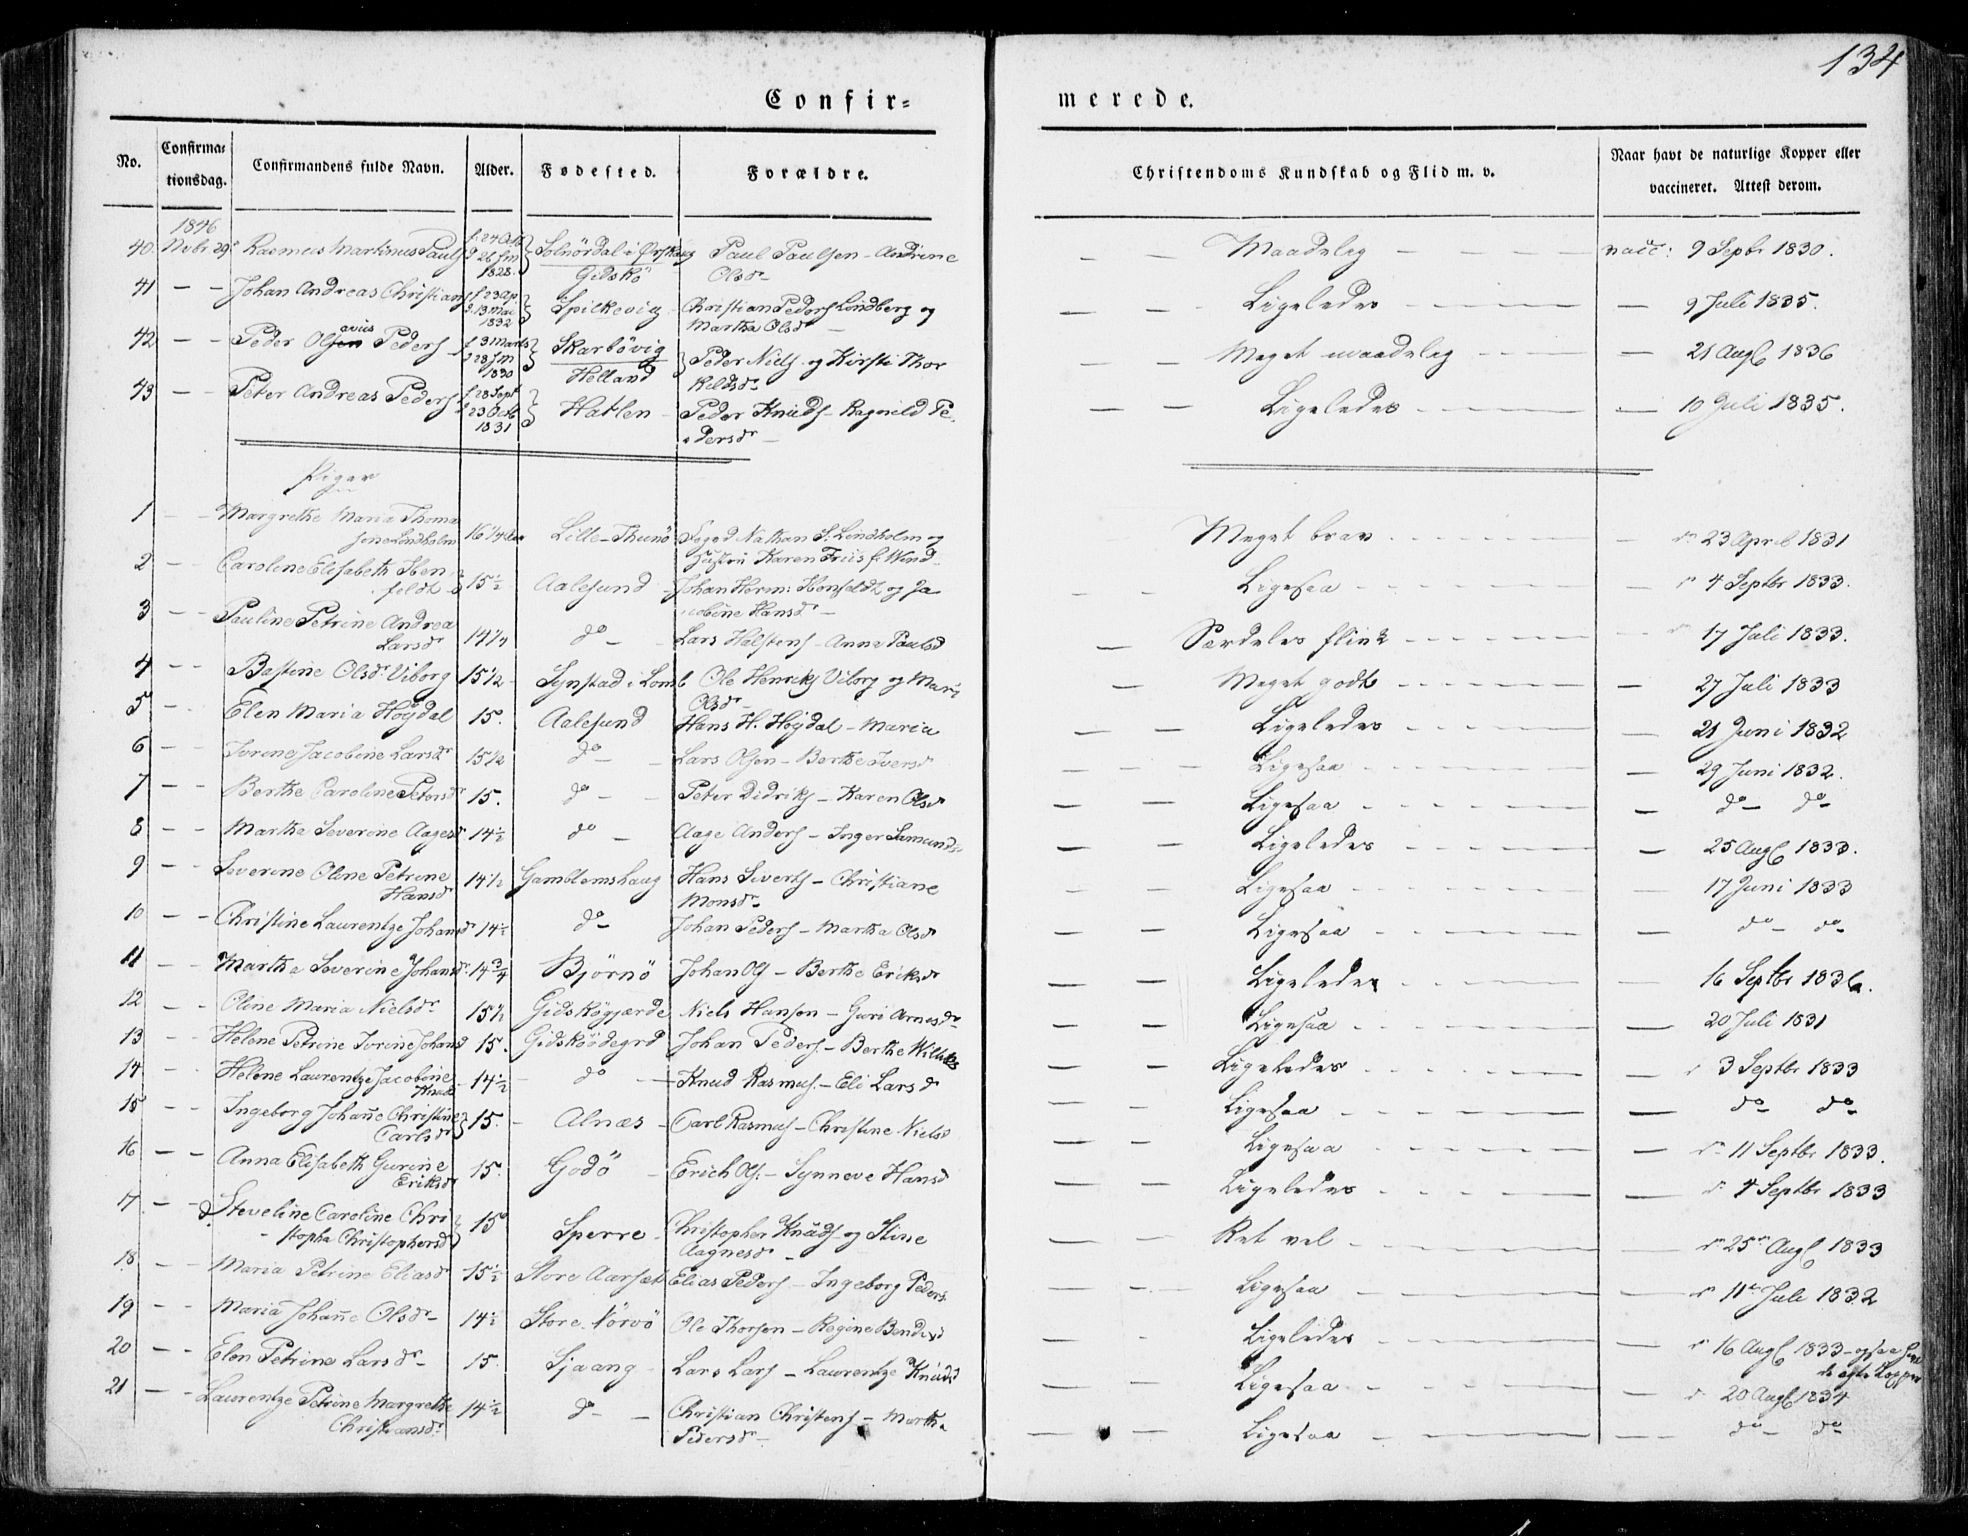 134
Confir=
merede.
No.
Confirma=
tionsdag.
Confirmandens fulde Navn.
Alder.
Fødested.
Forældre.
Christendoms Kundskab og Flid m. v.
Naar havt de naturlige Kopper eller
vaccineret. Attest derom.
1846
40. Novbr 29de Rasmus Martinus Pauls f. 24 Oct 1828. Solnördal i Ørskoug Paul Paulsen - Andrine Maadelig vacc: 9 Septbr 1830.
Gidskö Olsdr
41 — — Johan Andreas Christians f 23 Ap. 13 Mai 1832 Spilkevig Christian Peders Lindberg og Ligeledes — 9 Juli 1835.
Martha Olsdr
42 — — Peder Olavius Peders f 3 Marts 1830 Skarbövig Peder Niels og Kirsti Thor Meget maadelig — 21 Augs 1836
Helland keldsdr
43 — — Peter Andreas Peders f 28 Sept 23 Octb 1831 Hatlen Peder Knuds - Ragnild Pe- Ligeledes — 10 Juli 1835.
dersdr
Piger
1 — — Margrethe Maria Thoma 16 1/4 Lille-Thunö Foged Nathan S. Lindholm og Meget brav dr 23 April 1831
sine Lindholm Hustru Karen Friis f. Wind
2 — — Caroline Elisabeth Hen 15 1/2 Aalesund Johan Herm: Honfeldt og Ja Ligesaa 4 Septbr 1833.
feldt cobine Hansdr
3 — — Pauline Petrine Andrea 14 1/4 do Lars Halstens - Anne Paulsd Særdeles flink 17 Juli 1833.
Larsdr
4 — — Bastine Olsdr Viborg 15 1/2 Synstad i Lomb Ole Henriks Viborg og Mari Meget godt 27 Juli 1833
Olsdr
5 — — Elen Maria Höydal 15. Aalesund Hans H. Höydal - Maria Ligeledes 21 Juni 1832
6 — — Ivrine Jacobine Larsdr 15 1/2 do Lars Olsen - Berthe Iversd Ligesaa 29 Juni 1832.
7 — — Berthe Caroline Petersdr 15. do Peter Didriks - Karen Olsdr Ligesaa do do
8 — — Martha Severine Aagesd 14 1/2 do Aage Anders - Inger Samunds Ligeledes 25 Augs 1833.
9 — — Severine Oline Petrine 14 1/2 Gamblemshaug Hans Siverts - Christiane Ligesaa 17 Juni 1833
Hansdr Monsdr
10 — — Christine Laurentze Johansdr 14 1/2 do Johan Peders - Martha Olsdr Ligesaa do do
11 — — Martha Severine Johansdr 14 3/4 Björnö Johan Ols - Berthe Eriksdr Ligeledes 16 Septbr 1836.
12 — — Oline Maria Nielsdr 15 1/2 Gidskögjærde Niels Hansen - Guri Arnesdr Ligesaa 20 Juli 1831
13 — — Helene Petrine Ivrine Johansd 15. Gidsköödegrd Johan Peders - Berthe Willaks Ligeledes 3 Septbr 1833
14 — — Helene Laurentze Jacobine 14 1/2 do Knud Rasmus. - Eli Larsdr Ligesaa do do
Knuds
15 — — Ingeborg Johañe Christine 15. Alnæs Carl Rasmus - Christine Nielsd Ligesaa dr 11 Septbr 1833.
Carlsdr
16 — — Anna Elisabeth Gurine 15. Godö Erich Ols. - Synneve Hansd Ligeledes 4 Septbr 1833
Eriksdr
17 — — Steveline Caroline Chri 15 Sperre Christopher Knuds og Stine Ret vel dr 25 Augs 1833
stopha Christophersdr Aagnesdr
18 — — Maria Petrine Eliasdr 15 1/2 Store Aarsæt Elias Peders - Ingeborg Peders Ligesaa 11te Juli 1832
19 — — Maria Johañe Olsdr 14 1/2 Store Nörvö Ole Thorsen - Regine Bendixd Ligeledes 16 Augs 1833 - ogsaa
20 — — Elen Petrine Larsdr 15. Sjaang Lars Lars - Laurentze Knudsd Ligesaa 20 Augs 1834
21 — — Laurentze Petrine Margrethe 14 1/2 do Christian Christens - Martha Ligesaa do do
Christiansdr Pedersdr